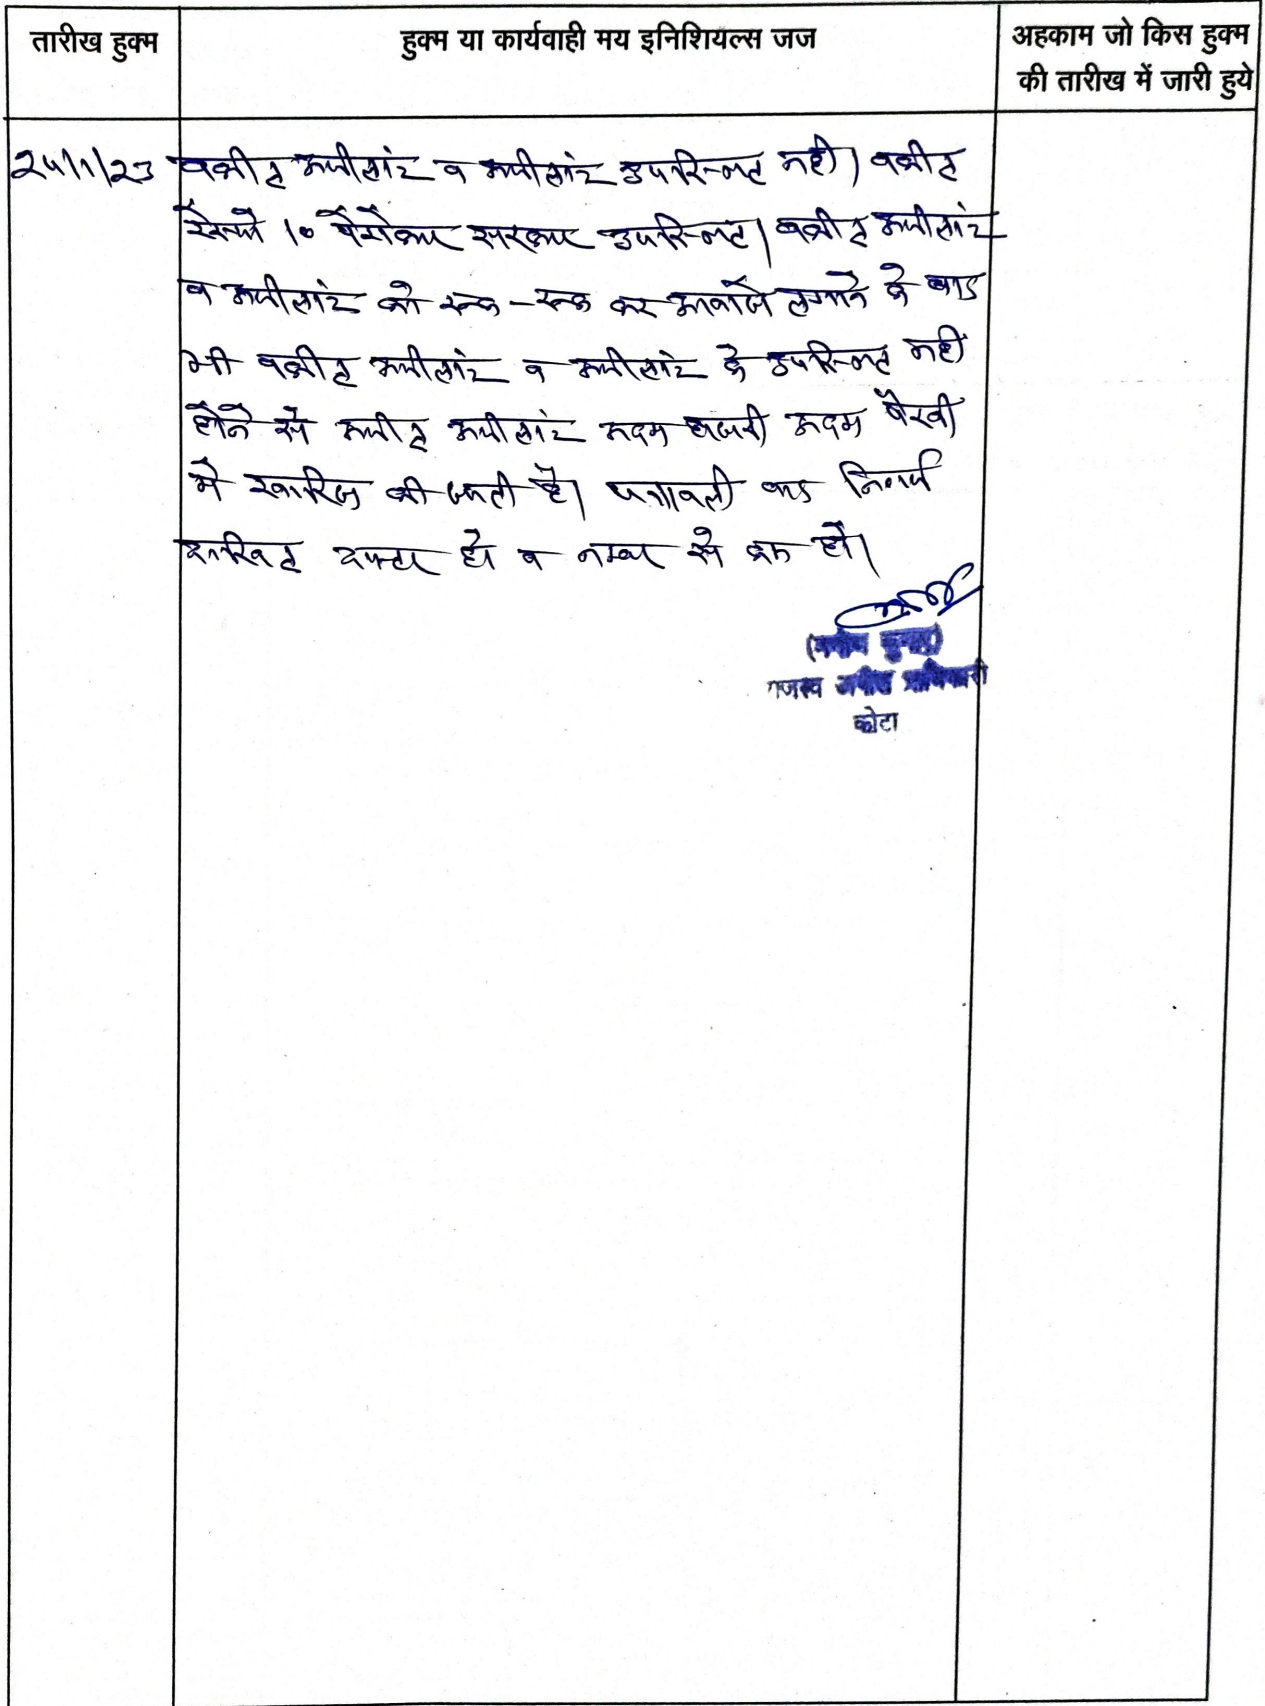 तारीख हुक्म
हुक्म या कार्यवाही मय इनिशियल्स जज
अहकाम जो किस हुक्म
की तारीख में जारी हुये
25/1/23 वकील अपीलांट व अपीलांट उपस्थित नही। वकील
रेस्पो 10 पैरोकार सरकार उपस्थित। वकील अपीलांट
व अपीलांट को रूक-रूक कर आवाजे लगाने के बाद
भी वकील अपीलांट व अपीलांट के उपस्थित नहीं
होने से अपील अपीलांट अदम हाजरी अदम पैरवी
मे खारिज की जाती है। पत्रावली बाद निर्णय
दाखिल दफ्तर हो व नम्बर से कम हो।
राजस्व अपील अधिकारी
कोटा